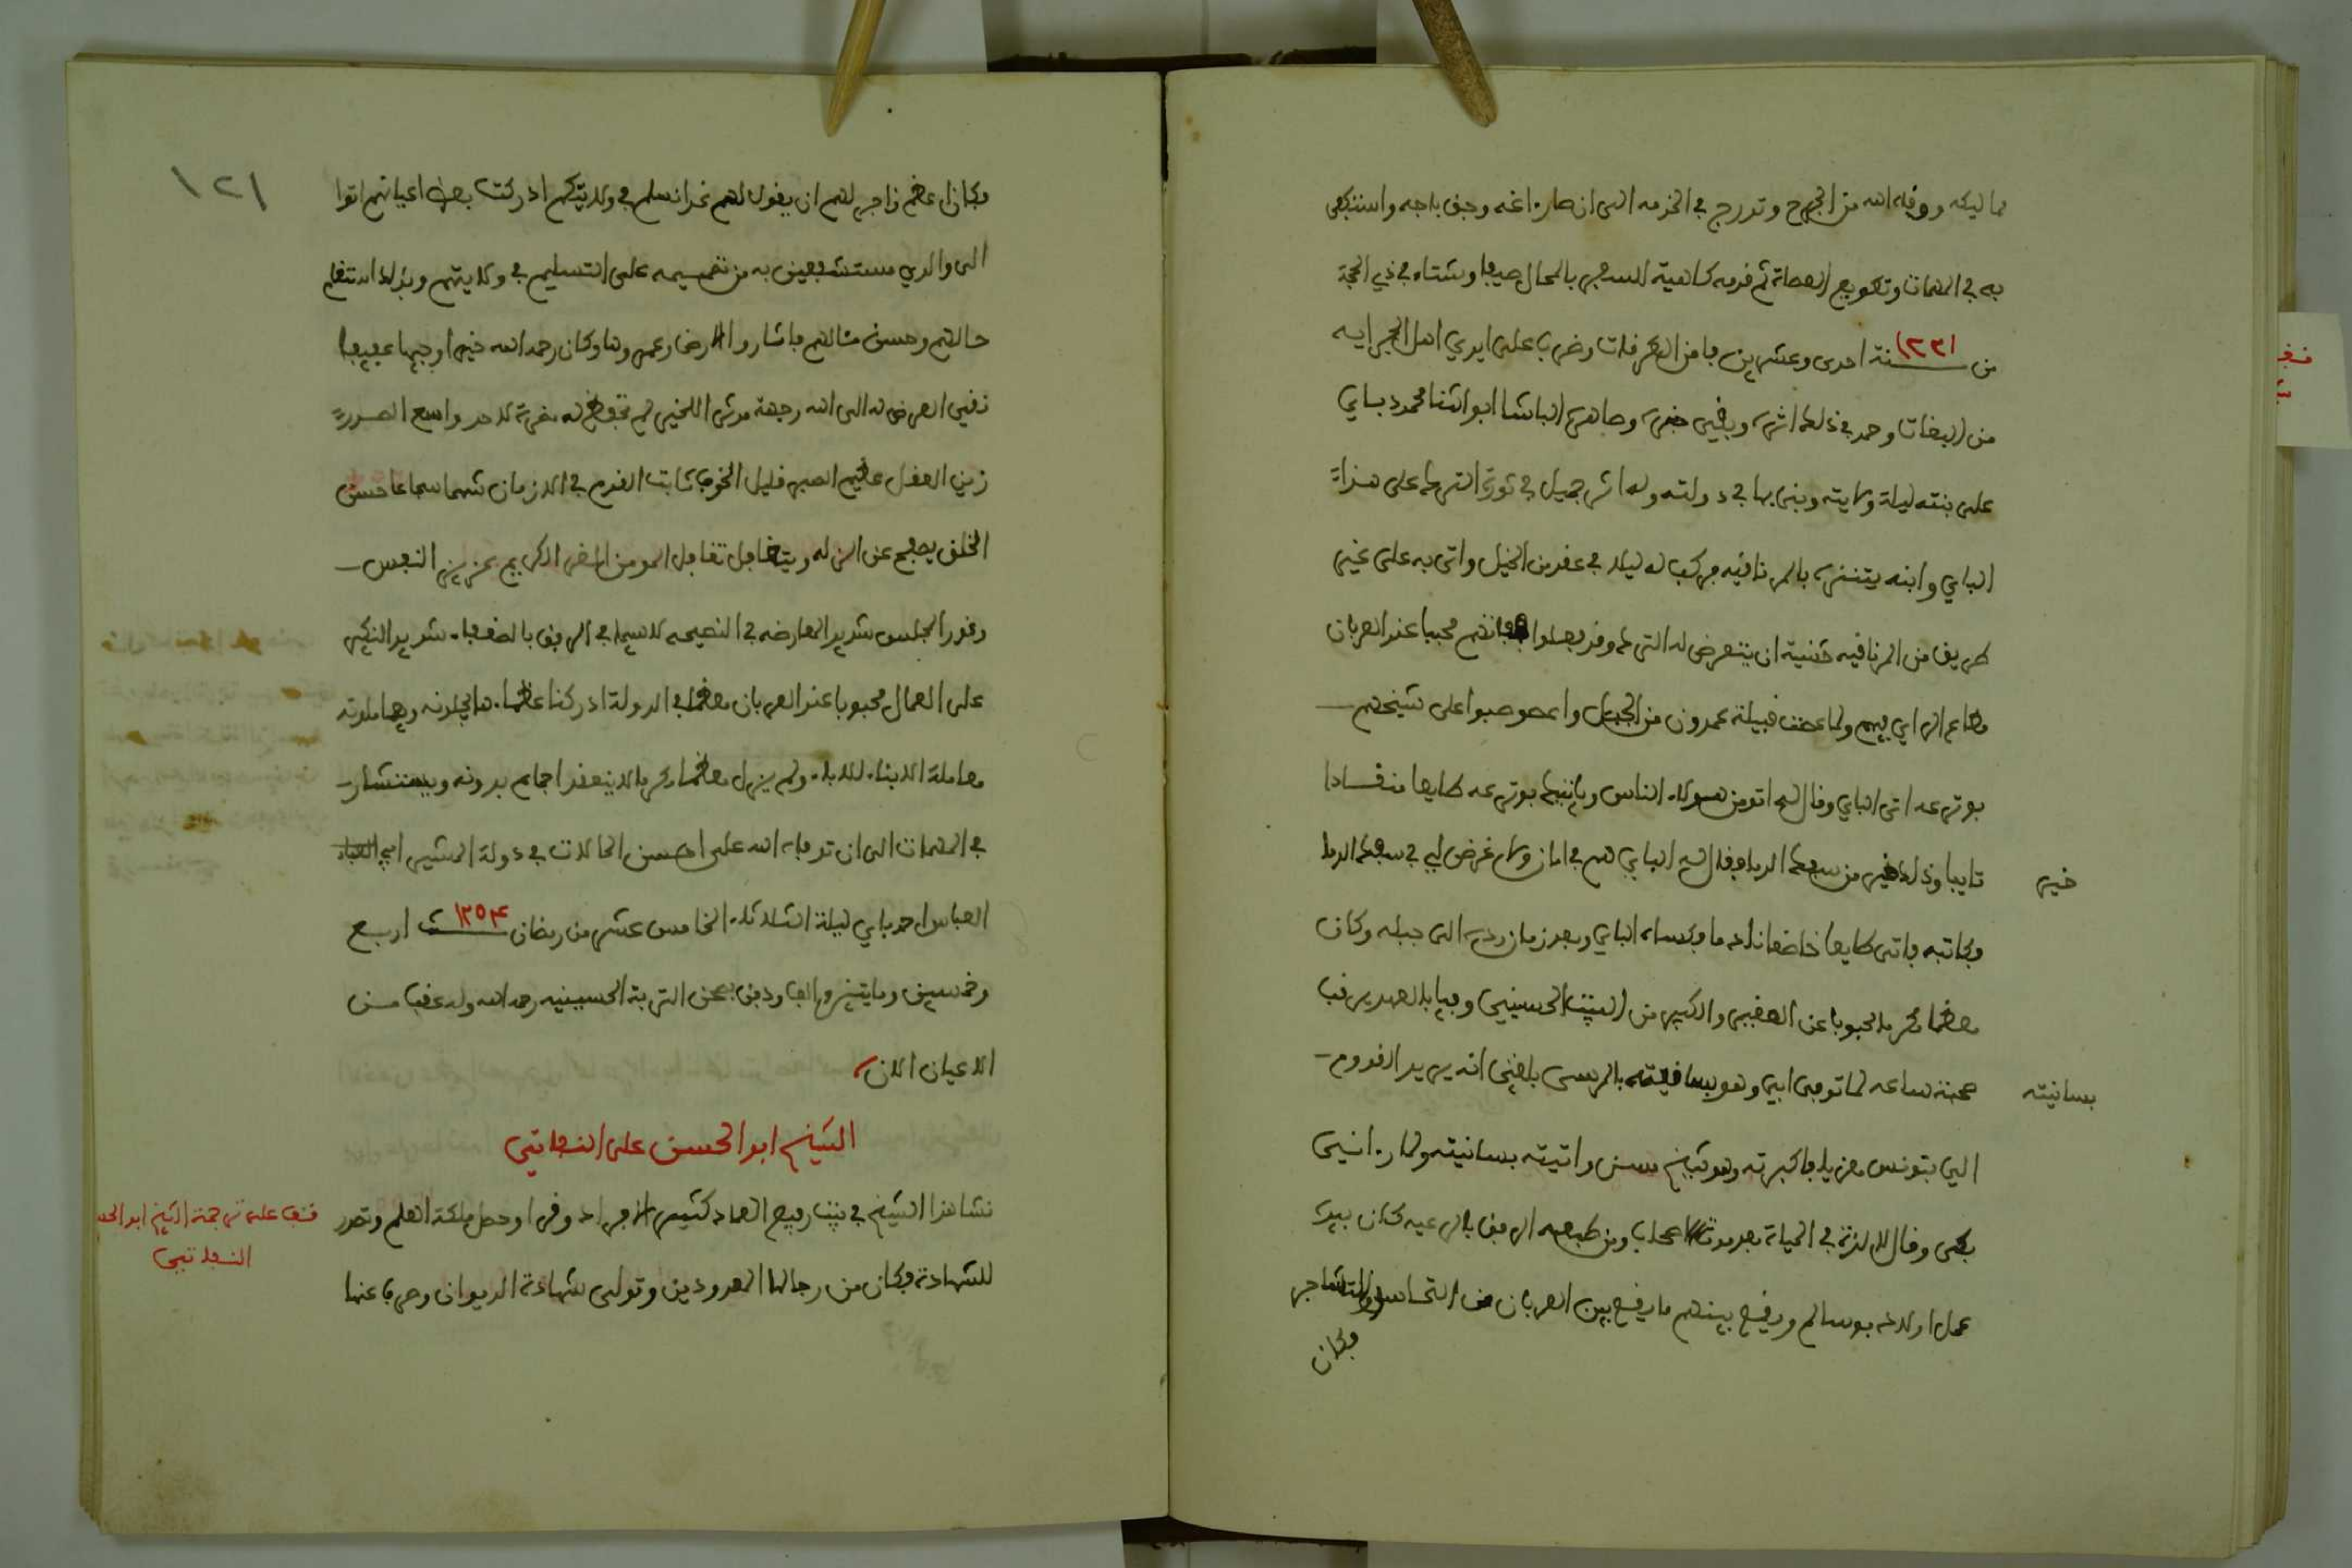 مماليكه ووقاه الله من الجرح وتدرج في الخدمه الى ان صار اغه وجق باجه واستكفى
به في المهمات وتطويع العصاة ثم قدمه كاهية للسفر بالمحال صيفا وشتاء في ذي الحجة
من سنة ١٢٣١ احدى وعشرين فامن الطرقات وضرب على ايدي اهل الجرايه
من البغات وحمد في ذلك اثره وبقي خبره وصاهره الباشا ابو الثنا محمود باي
على بنته ليلة ولايته وبنى بها في دولته وله اثر جميل في ثورة الترك على هذا
الباي وابنه يتنزه بالمرناقيه فركب له ليلا في عقد من الخيل واتى به على غير
طريق من المرناقيه خشية ان يتعرض له الترك وقد فعلوا فانهم محببا عند العربان
مطاع الراي فيهم ولما عصت قبيلة عمدون من الجبل واعصوصبوا على شيخهم
بوترعه اتى الباي وقال له اتومن هولاء الناس وياتيك بوترعه طايعا منقادا
تايبا وذلك خير من سفك الدما فقال له الباي هم في امان ولا غرض لي في سفك الدما
خير
فكاتبه فاتى طايعا خاضعا نادما فكساه الباي وبعد زمان رده الى جبله وكان
معظما مكرما محبوبا عن الصغير والكبير من البيت الحسيني وفيا بالعهد يرقب
صحبة ساعه لما توفى ابي وهو بسانيته بالمرسى بلغني انه يريد القدوم
بسانيته
الي بتونس معزيا فاكبرته وهو شيخ مسن واتيته بسانيته ولما رءاني
بكى وقال لا لذة في الحياة بعد موت الاصحاب ومن طبعه الرفق بالرعيه كان بيده
عمل اولاد بوسالم ويقع بينهم ما يقع بين العربان من التحاسد والتشاجر
فكان
١٢١
فكان اعظم زاجر لهم ان يقول لهم غدا نسلم في ولايتكم ادركت بعض اعيانهم اتوا
الى والدي مستشفعين به من تصميمه على التسليم في ولايتهم وبذلك استقام
حالهم وحسن مئالهم فاثاروا الارض وعمروها وكان رحمه الله خيرا وجيها عفيفا
نقي العرض له الى الله وجهة مرشدا للخير لم تحفظ له مضرة لاحد واسع الصدر
زين العقل عظيم الصبر قليل الخوف ثابت القدم في الازمان شهما شجاعا حسن
الخلق يصفح عن الزله ويتغافل تغافل المومن الغر الكريم عزيز النفس
وقور المجلس شديد المعارضه في النصيحه لا سيما في الرفق بالضعفا شديد النكير
على العمال محبوبا عند العربان معظما في الدولة ادركنا عظماءها يجلونه ويعاملونه
معاملة الابناء للاباء ولم يزل معظما مكرما لا ينعقد اجماع بدونه ويستشار
في المهمات الى ان توفاه الله على احسن الحالات في دولة المشير ابي العباد
العباس احمد باي ليلة الثلاثاء الخامس عشر من رمضان سنة ١٢٥٤ اربع
وخمسين ومايتين والف ودفن بصحن التربة الحسينيه رحمه الله وله عقب من
الاعيان الان
الشيخ ابو الحسن على النفاتي
نشا هذا الشيخ في بيت رفيع العماد كثير الافراد وقرا وحصل ملكة العلم وتصدر
قف على ترجمة الشيخ ابو الحسن
النفاتي
للشهادة فكان من رجالها المعدودين وتولى شهادة الديوان وصرف عنها